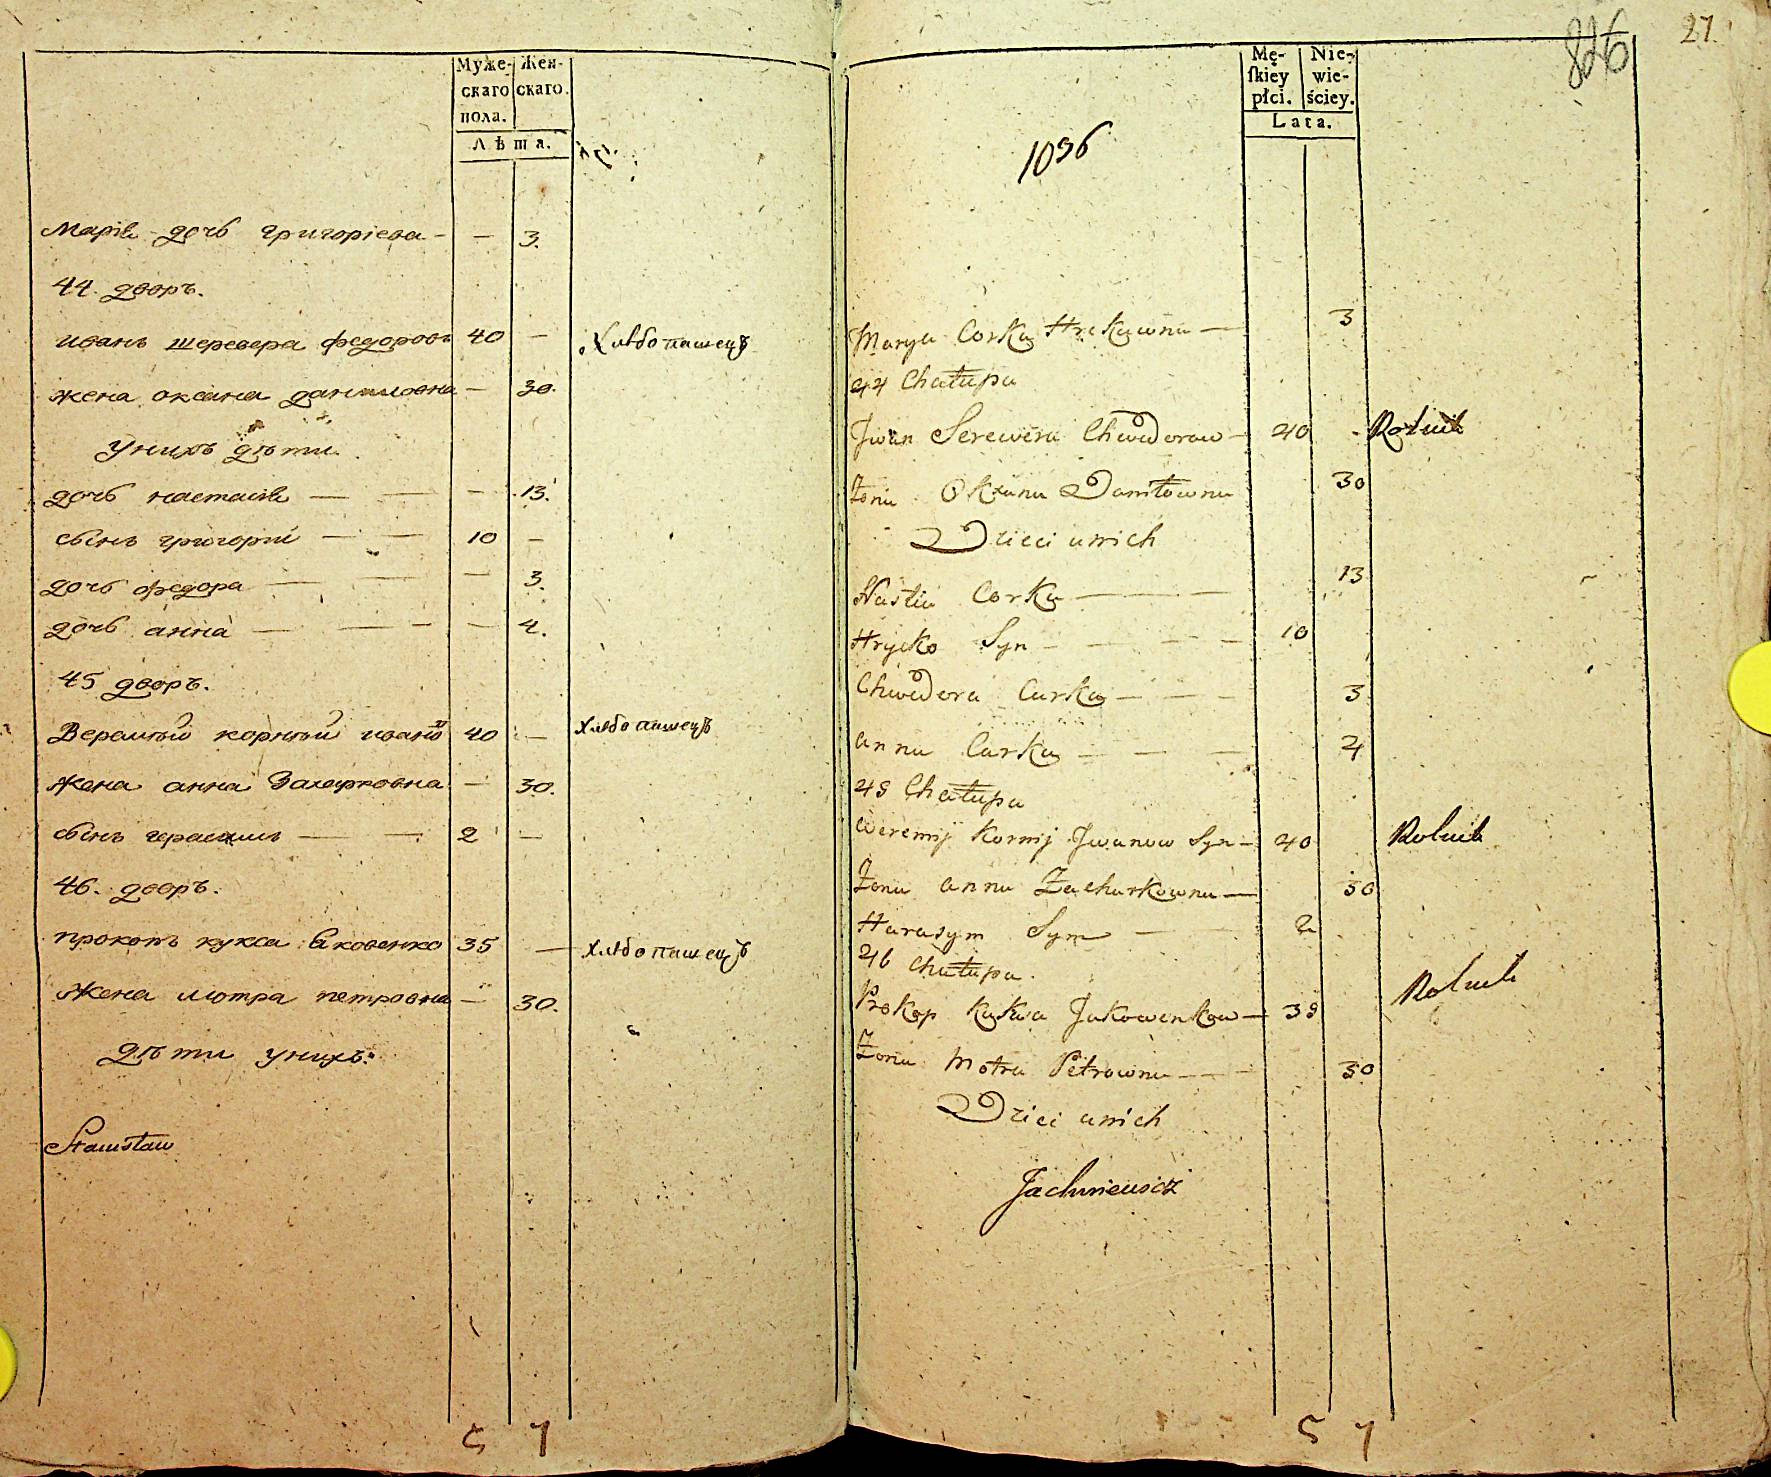 Муже- Жен-
скаго скаго.
пола.
Лѣта.
Марія дочь григоріева — — 3.
44. дворъ.
иванъ шеревера федоровъ 40 — Хлѣбопашецъ
жена оксана даниловна — 30.
унихъ дѣти
дочь настасія — — — 13.
сынъ григорій — — 10 —
дочь федора — — — 3.
дочь анна — — — 4.
45 дворъ.
Веремѣй корнѣй ивановъ 40 — хлѣбопашецъ
жена анна Захарковна — 30.
сынъ герасимъ — — 2 —
46. дворъ.
прокопъ кукса яковенко 35 — хлѣбопашецъ
жена мотра петровна — 30.
дѣти унихъ:
Stanisław
5 7
826 27.
Mę- Nie-
skiey wie-
płci. ściey.
Lata.
1096
Marya Corka Hrckuwna — 3
44 Chałupa
Jwan Serewera Chwedorow — 40 - Rolnik
Żona Oksana Daniłowna 30
Dzieci unich
Nastia Corka — — — 13
Hrycko Syn — — — 10
Chwedora Curka — — — 3
anna Curka — — — 4
45 Chałupa
Weremij Kornij Jwanow Syn — 40 Rolnik
Żona anna Zacharkowna — 30
Harasym Syn — — 2
46 Chałupa.
Prokop Kuksa Jakowenkow — 35 Rolnik
Żona Motra Petrowna — — 30
Dzieci unich
Jachniewicz
5 7